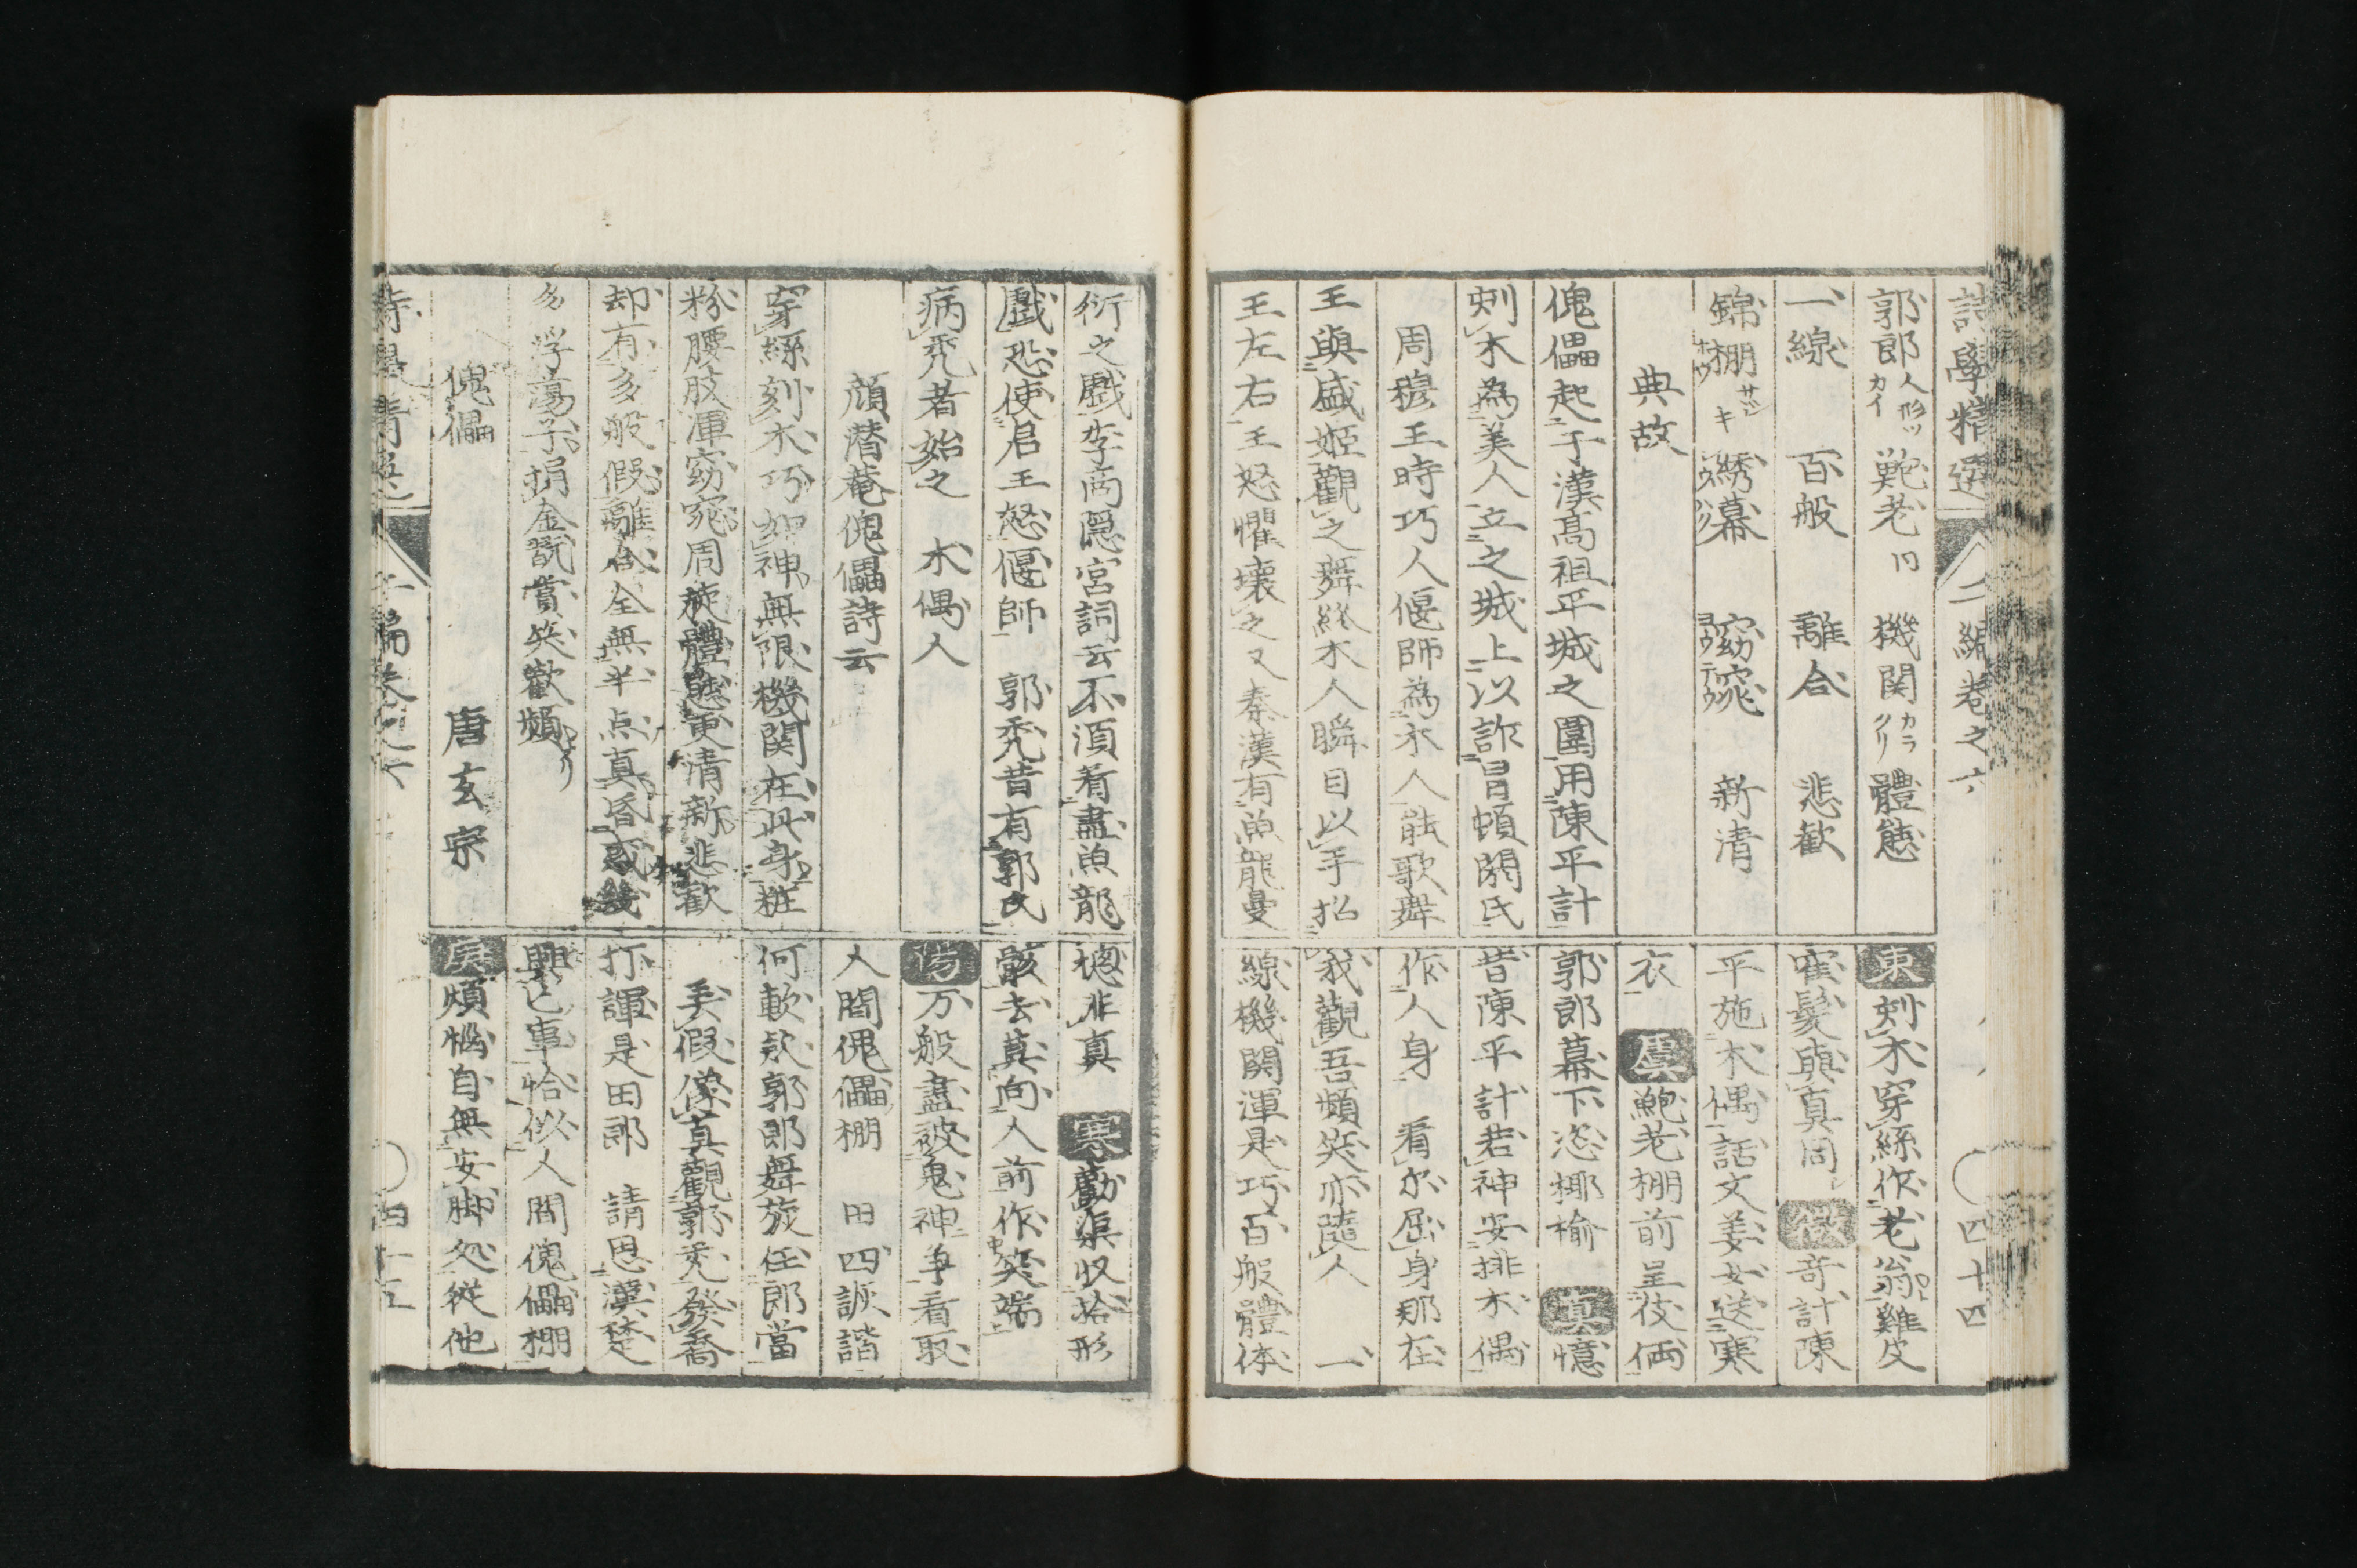 詩學精選 二編卷之六 四十四
郭郎 鮑老 機関 體態
一線 百般 離合 悲歓
錦棚 綉幕 窈窕 新清
典故
傀儡起于漢髙祖平城之圍用陳平計
刻木為美人立之城上以詐冒頓閼氏
周穆王時巧人偃師為木人能歌舞
王與盛姬觀之舞終木人瞬目以手招
王左右王怒懼壊之又秦漢有魚龍曼
東 刻木穿絲作老翁雞皮
寉髮與真同 微 奇計陳
平施木偶話文姜女送寒
衣 虞 鮑老棚前呈伎倆
郭郎幕下恣揶揄 真 憶
昔陳平計若神安排木偶
作人身 看尓屈身那在
我觀吾頻笑亦隨人 一
線機関渾是巧百般體体
衍之戲李商隠宮詞云不須看盡魚龍
戲恐使君王怒偃師 郭禿昔有郭氏
病禿者始之 木偶人
顔潜菴傀儡詩云
穿絲刻木巧如神無限機関在此身粧
粉腰肢渾窈窕周旋體態更清新悲歓
却有多般假離合全無半点真昏惑幾
多浮蕩子捐金翫賞笑歡頻
傀儡 唐玄宗
揔非真 寒 勸渠収拾形
骸去莫向人前作笑端
陽 万般盡被鬼神争看取
人間傀儡棚 田四詼諧
何軟欵郭郎舞旋任郎當
手假像真觀郭禿發喬
打諢是田郎 請思漢楚
興亡事恰似人間傀儡棚
庚 煩惱自無安脚処従他
四十五